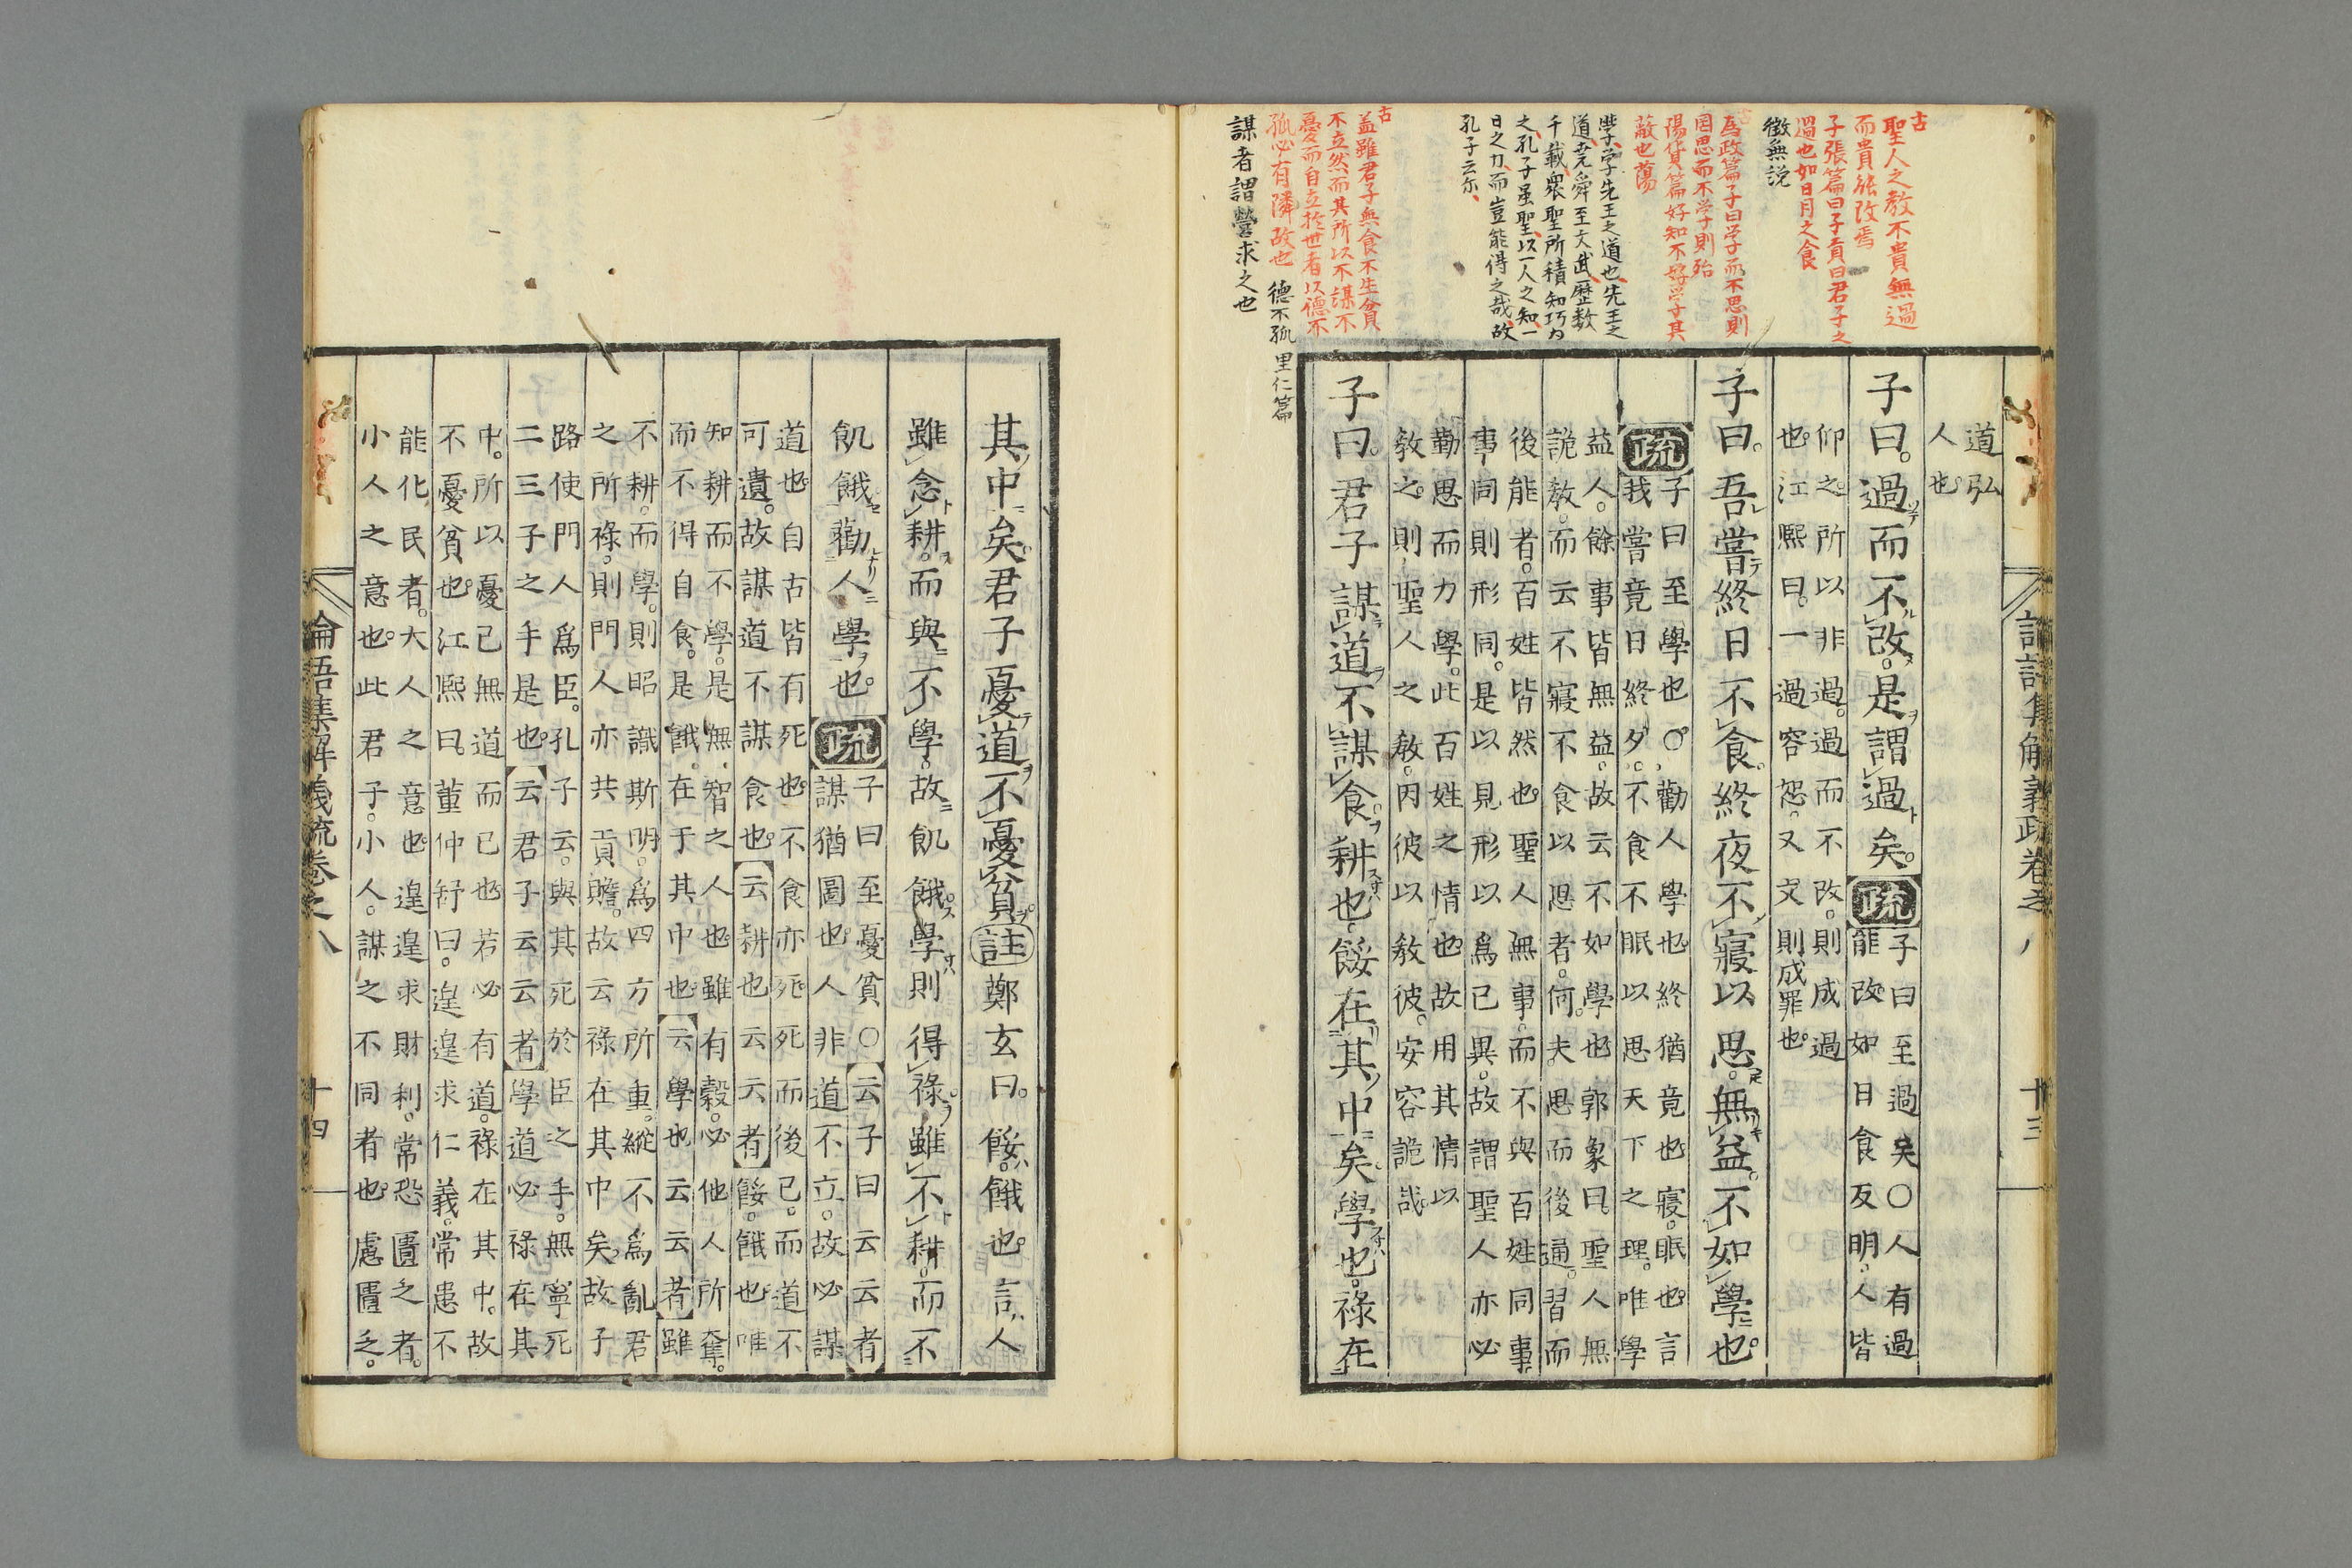 古
聖人之教不貴無過
而貴能改焉
子張篇曰子貢曰君子之
過也如日月之食
徴無説
古
為政篇子曰学而不思則
罔思而不学則殆
陽貨篇好知不好学其
蔽也蕩
學、学先王之道也、先王之
道、堯舜至文武、歴数
千載衆聖所積知巧為
之、孔子虽聖、以一人之知、一
日之力、而豈能得之哉、故
孔子云尓、
古
蓋雖君子無食不生貧
不立然而其所以不謀不
憂而自立於世者以德不
孤必有隣故也 德不孤 里仁篇
謀者謂營求之也
論語集解義疏卷之八 十三
道弘
人也
子曰。過而不改。是謂過矣。疏
子曰至過矣〇人有過
能改如日食反明。人皆
仰之。所以非過。過而不改。則成過
也。江熙曰。一過容恕。又文則成罪也。
子曰。吾嘗終日不食。終夜不寢以思。無益。不如學也。
疏
子曰至學也〇勸人學也終猶竟也寢。眠也言
我嘗竟日終夕。不食不眠以思天下之理。唯學
益人。餘事皆無益。故云不如學也郭象曰。聖人無
詭教。而云不寢不食以思者。何。夫思而後通。習而
後能者。百姓皆然也聖人無事。而不與百姓同事。
事同則形同。是以見形以爲已異。故謂聖人亦必
勤思而力學。此百姓之情也故用其情以
教之。則聖人之教。因彼以教彼。安容詭哉。
子曰。君子謀道不謀食。耕也。餒在其中矣。學也。祿在
其中矣。君子憂道不憂貧。註鄭玄曰。餒。餓也。言人
雖念耕。而與不學。故飢餓。學則得祿。雖不耕。而不
飢餓。勸人學也。疏
子曰至憂貧〇【云子曰云云者】
謀猶圖也。人非道不立。故必謀
道也。自古皆有死也。不食亦死。死而後已。而道不
可遺。故謀道不謀食也。【云耕也云云者】餒。餓也。唯
知耕而不學。是無智之人也。雖有穀。必他人所奪。
而不得自食。是餓。在于其中也。【云學也云云者】雖
不耕。而學。則昭識斯明。爲四方所重。縱不爲亂君
之所祿。則門人亦共貢贍。故云祿在其中矣。故子
路使門人爲臣。孔子云。與其死於臣之手。無寧死
二三子之手是也。【云君子云云者】學道必祿在其
中。所以憂已無道而已也。若必有道。祿在其中。故
不憂貧也。江熙曰。董仲舒曰。遑遑求仁義。常患不
能化民者。大人之意也。遑遑求財利。常恐匱乏者。
小人之意也。此君子。小人。謀之不同者也。慮匱乏。
論語集解義疏卷之八 十四